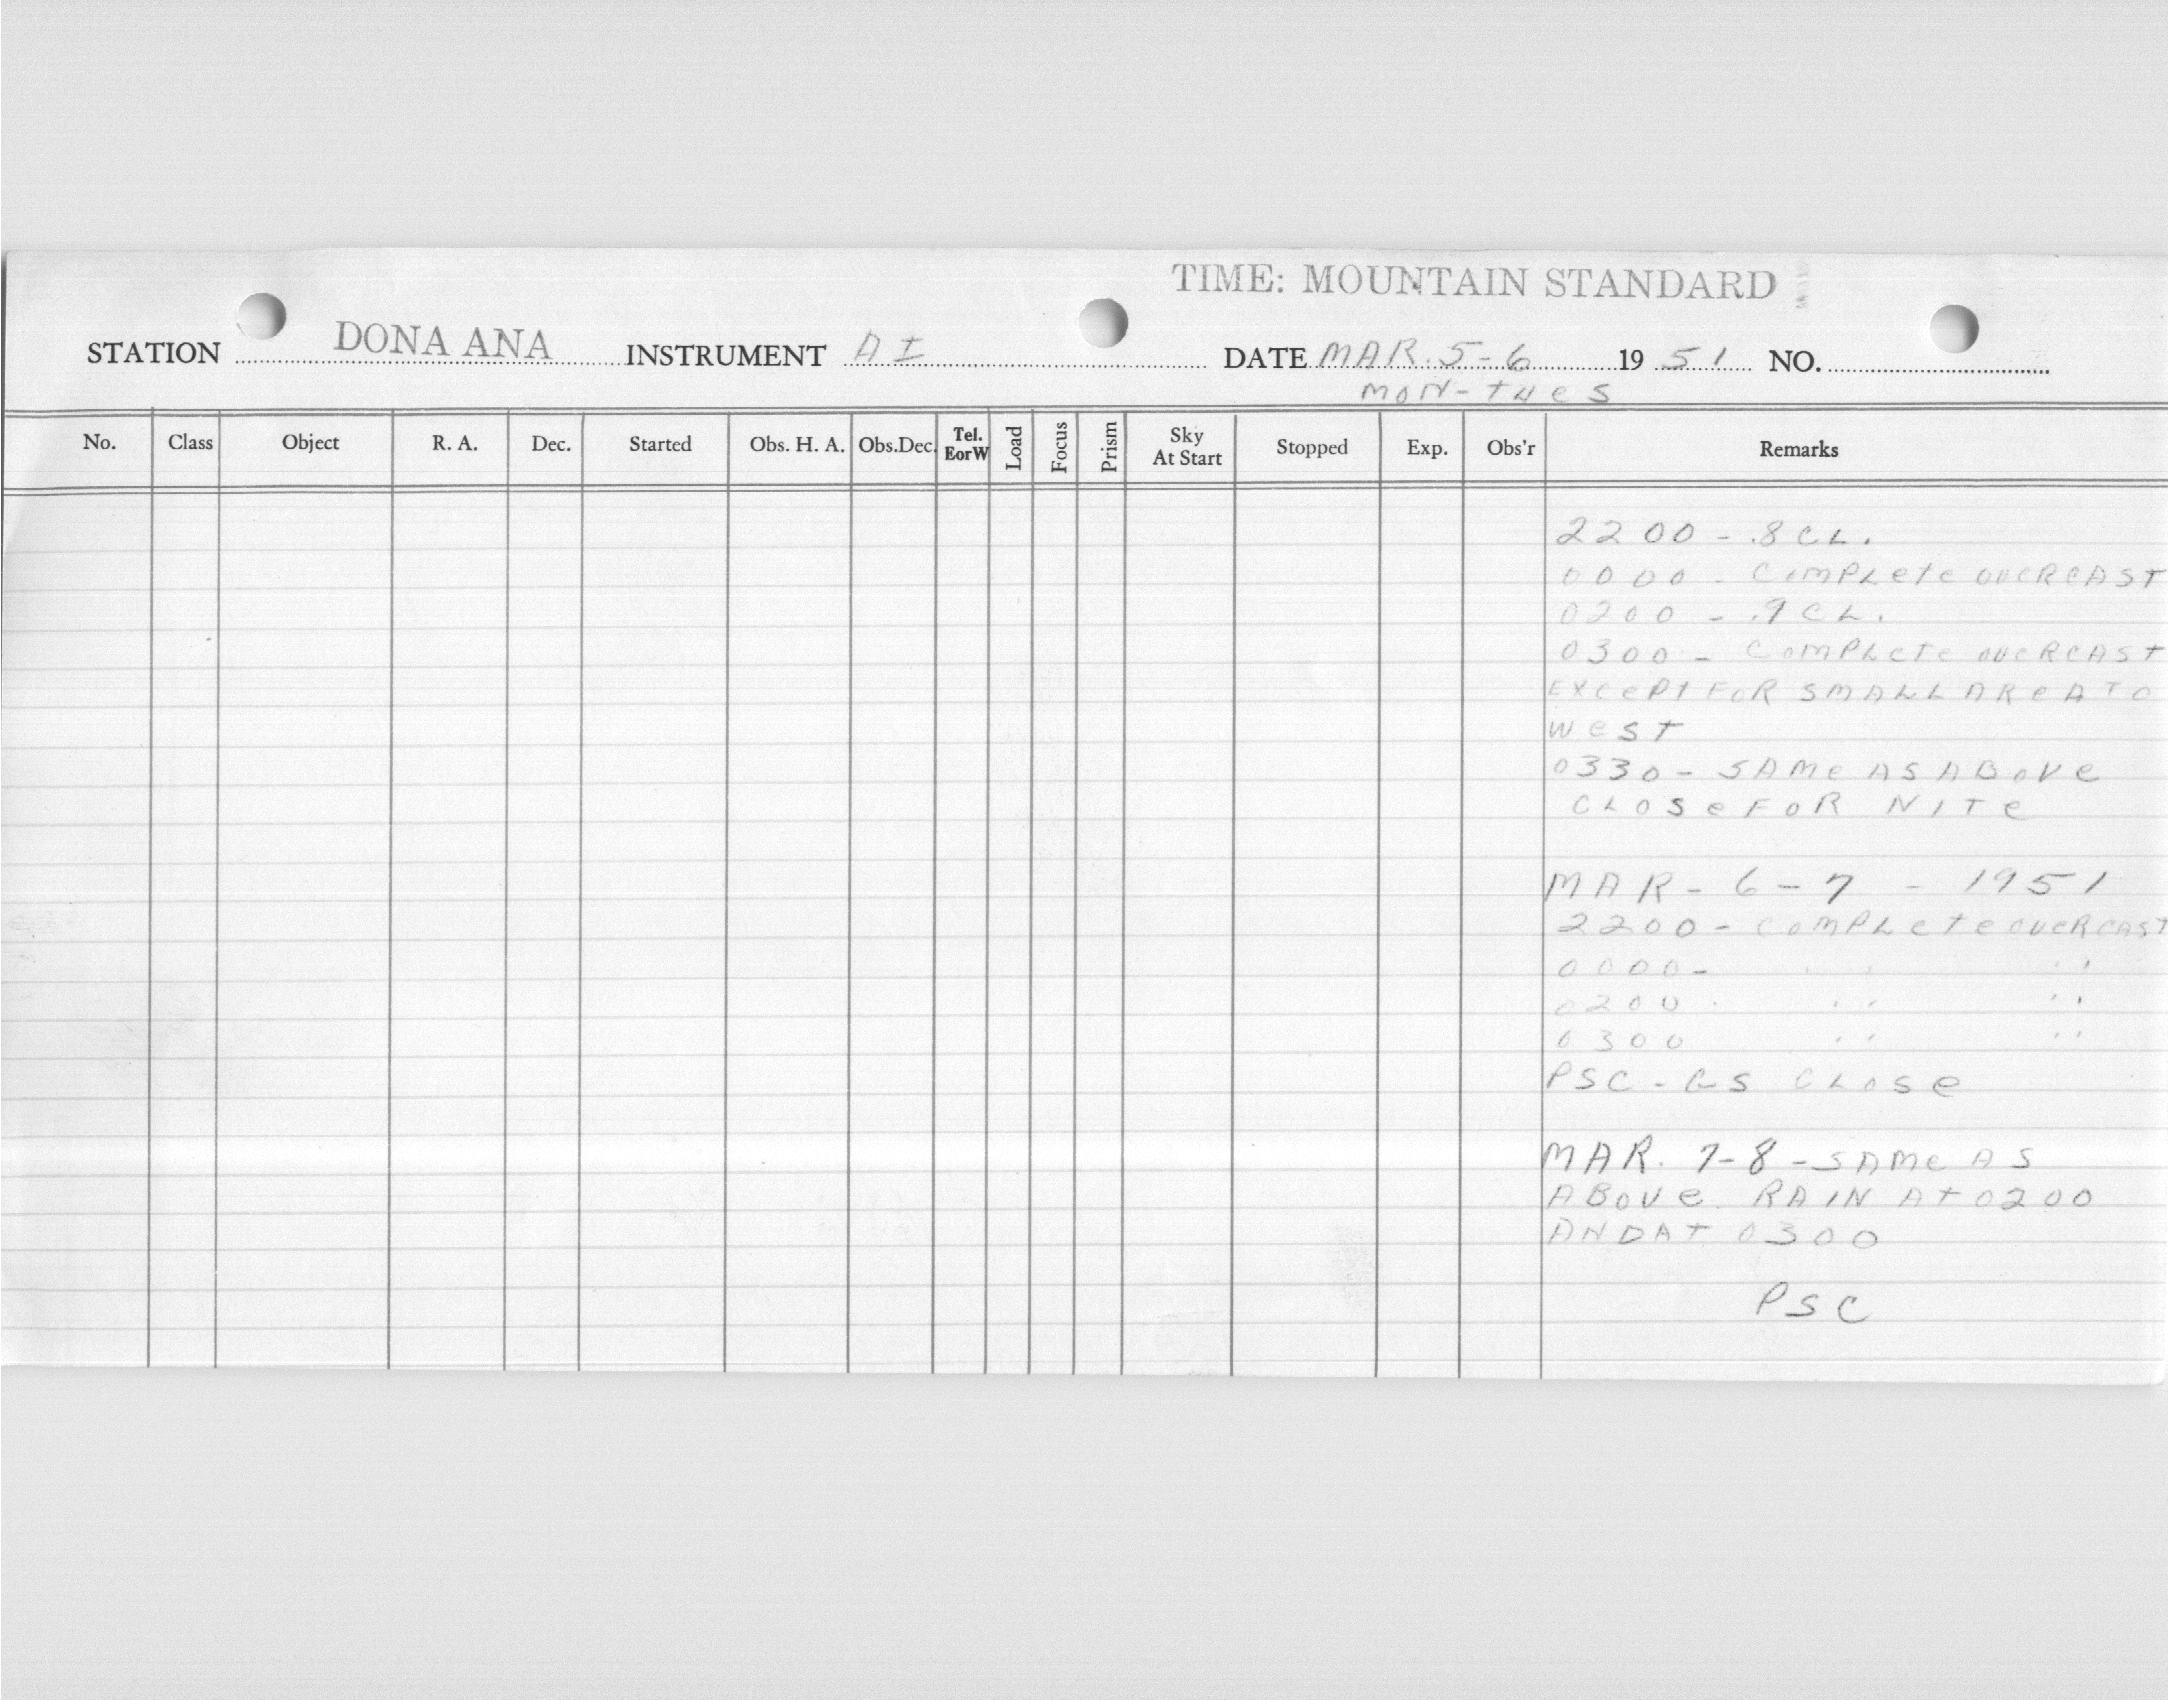 TIME: MOUNTAIN STANDARD
STATION DONA ANA INSTRUMENT AI DATE MAR. 5-6 1951 NO.
MON-TUES
No. Class Object R. A. Dec. Started Obs. H. A. Obs.Dec. Tel. EorW Load Focus Prism Sky At Start Stopped Exp. Obs'r Remarks
2200 - .8 CL.
0000 - COMPLETE OVERCAST
0200 - .9 CL.
0300 - COMPLETE OVERCAST
EXCEPT FOR SMALL AREA TO
WEST
0330 - SAME AS ABOVE
CLOSE FOR NITE
MAR - 6 - 7 - 1951
2200 - COMPLETE OVERCAST
0000 - " "
0200 - " "
0300 " "
PSC - GS CLOSE
MAR. 7-8 - SAME AS
ABOVE. RAIN AT 0200
AND AT 0300
PSC